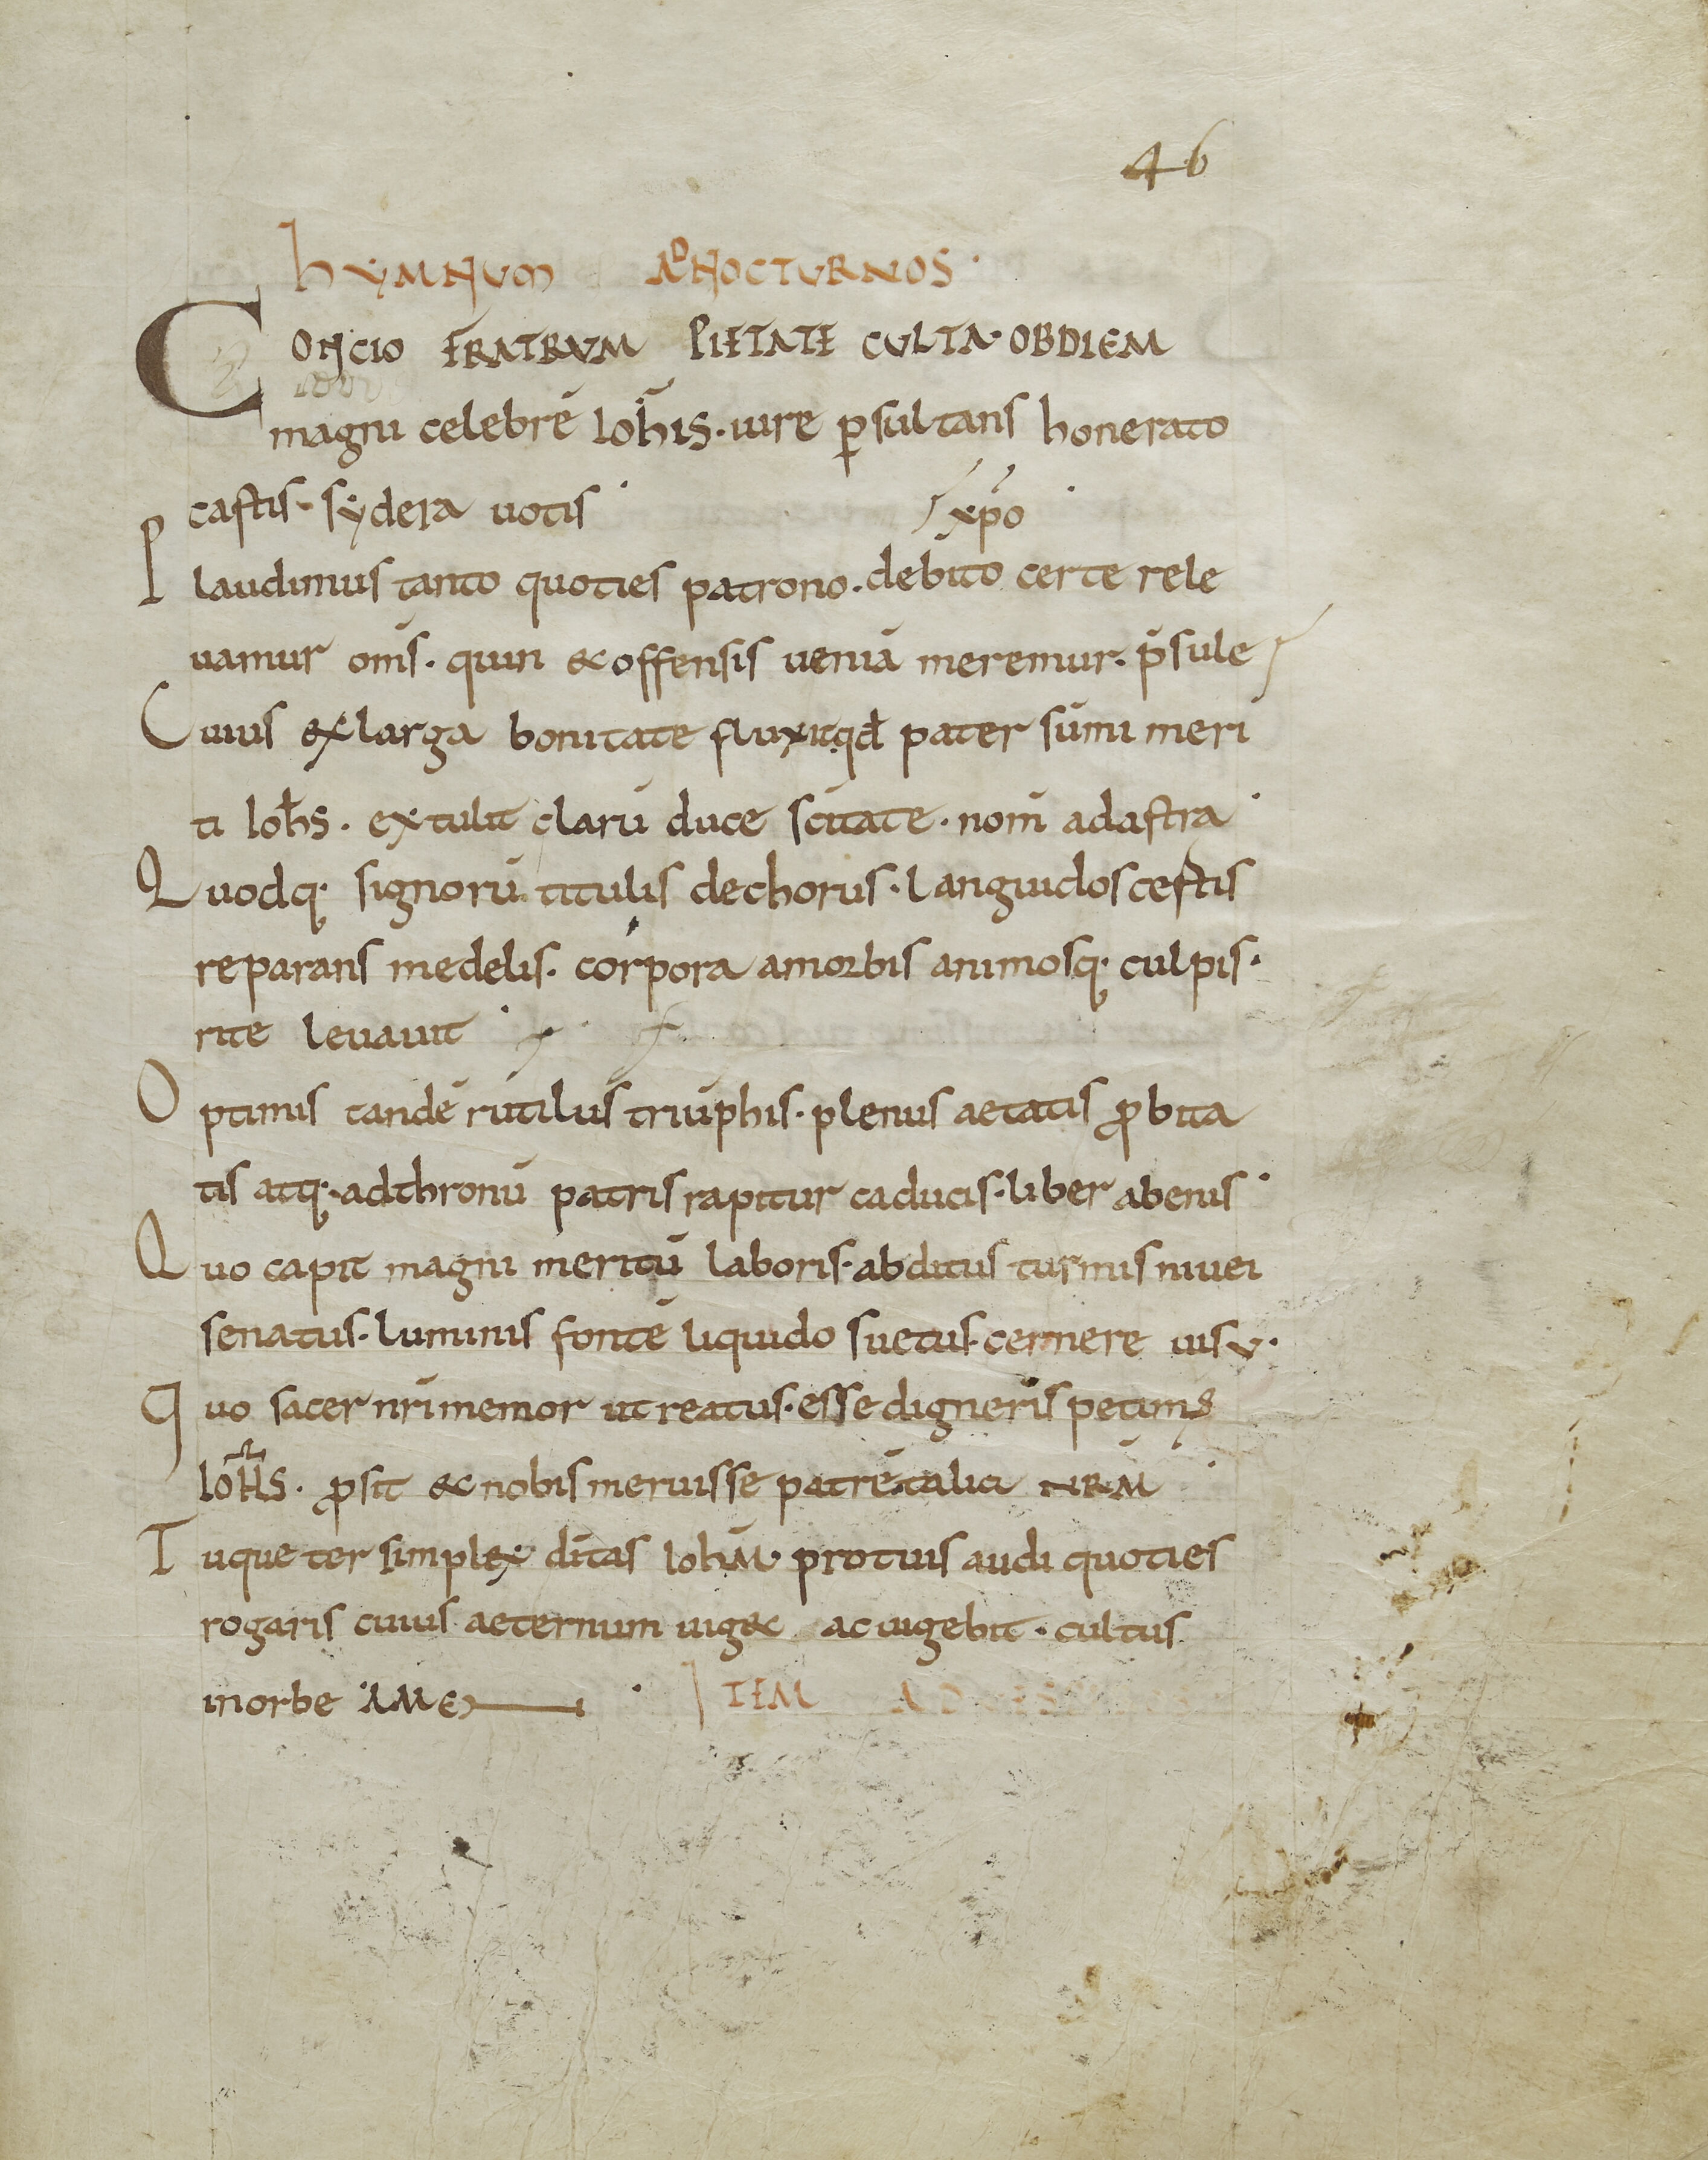 46
hYMNUM ADNOCTURNOS·
CONCIO FRATRVM PIETATE CULTA·OBDIEM
magni celebrē Ioh̄is·iure p̲sultans honerato
castis·sydera uotis
xp̄o
Plaudimus tanto quoties patrono·debito certe rele
uamur om̄s·quin &offensis ueniā meremur·p̄sule
Cuius exlarga bonitate fluxit qđ pater sūmi meri
ti Ioħs·extulit clarū duce sc̄itate·nom̄ adastra
Quodq· signorū titulis dechorus·languidos cestis
reparans medelis·corpora amorbis animosq· culpis·
rite leuauit
Optimis tandē rutilus triūphis·plenus aetatis ꝓbita
tis atq·adthronū patris rapitur caducis·liber abenis
Quo capit magni meritū laboris·abditus turmis niuei
senatus·luminis fontē liquido suetus·cernere uisv·
Quo sacer nr̄i memor ut reatus·esse digneris petimus
Ioh̄s· ꝓsit & nobis meruisse patrē·talia NR̄M
Tuque ter simplex dītas Ioh̄M·pro tuis audi quoties
rogaris cuius aeternum uig& ac uigebit·cultus
inorbe AMEN ITEM AD